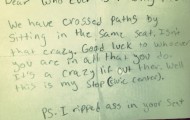 Dear Who Ever
We have crossed paths by
Sitting in the same seat, Isn't
that crazy. Good luck to whoever
you are in all that you do.
It's a crazy life out there. Well
this is my stop (civic center).
P.S. I ripped ass in your seat